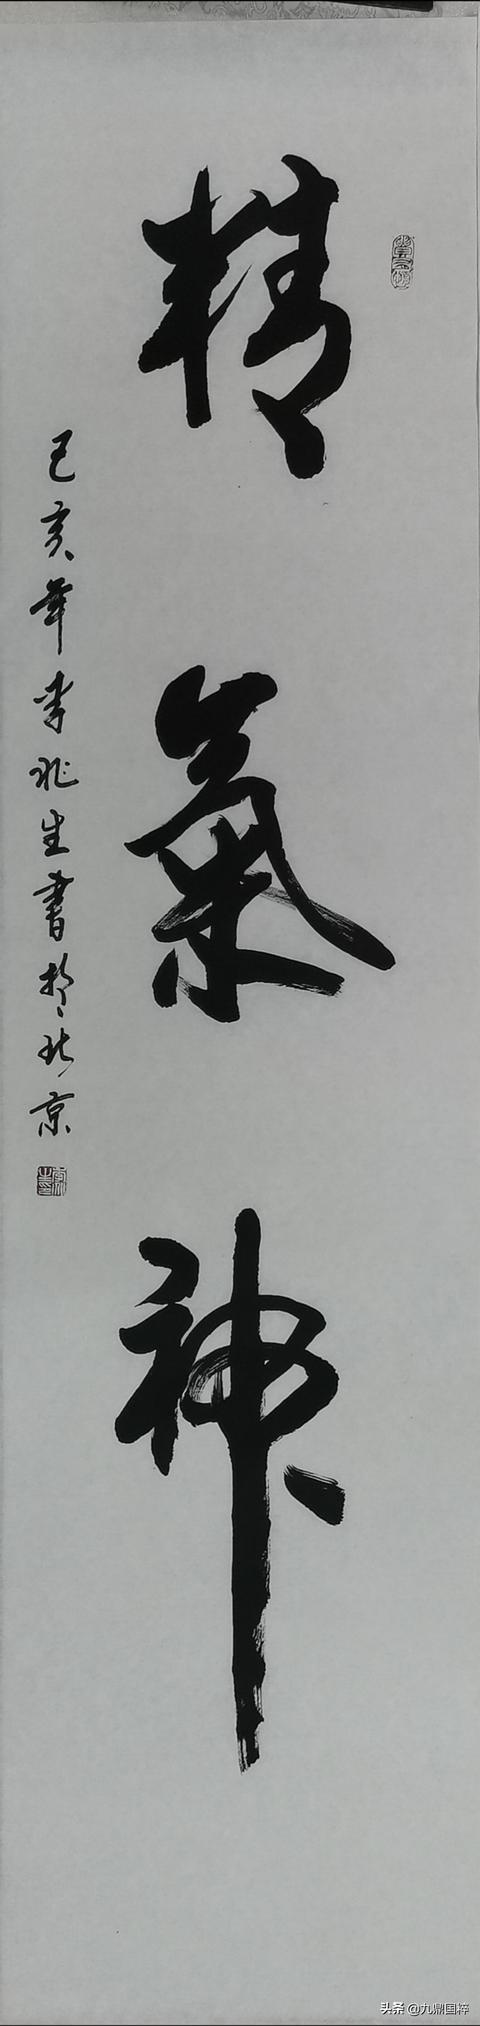 精氣神
己亥年李兆生書於北京
头条 @九鼎国粹